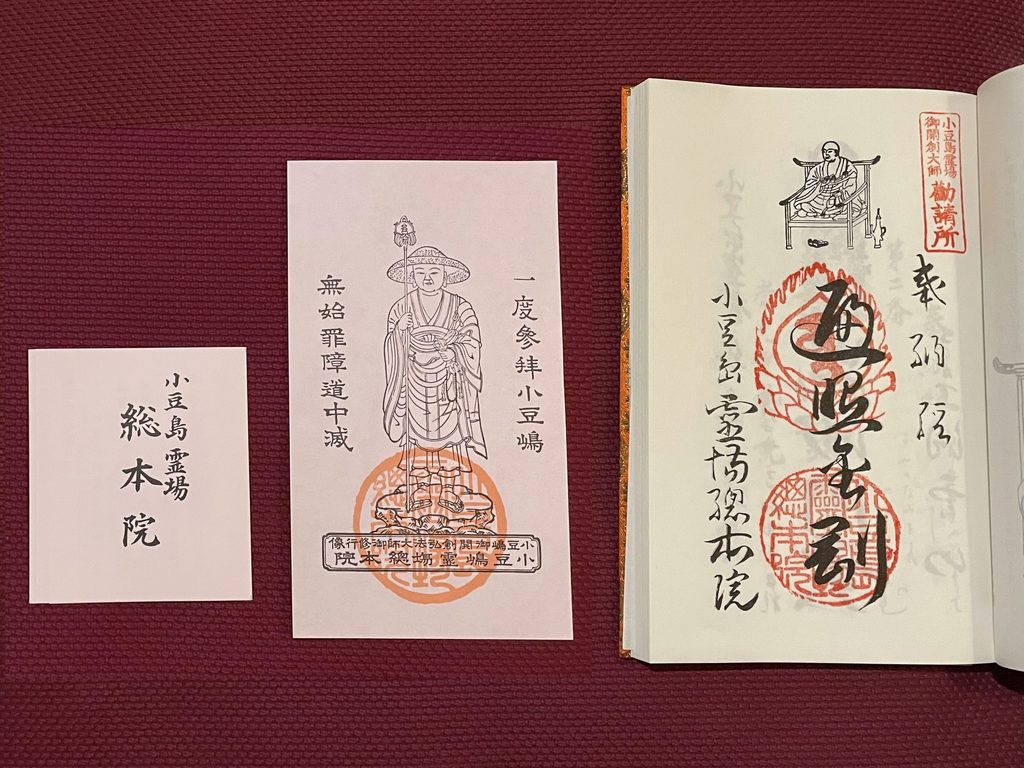 小豆島 霊場
総本院
一度參拝小豆嶋
無始罪障道中滅
小豆嶋御開創弘法大師御修行像
小豆嶋靈場總本院
小豆島霊場
御開創大師
勸請所
奉納経
遍照金剛
小豆島霊場總本院